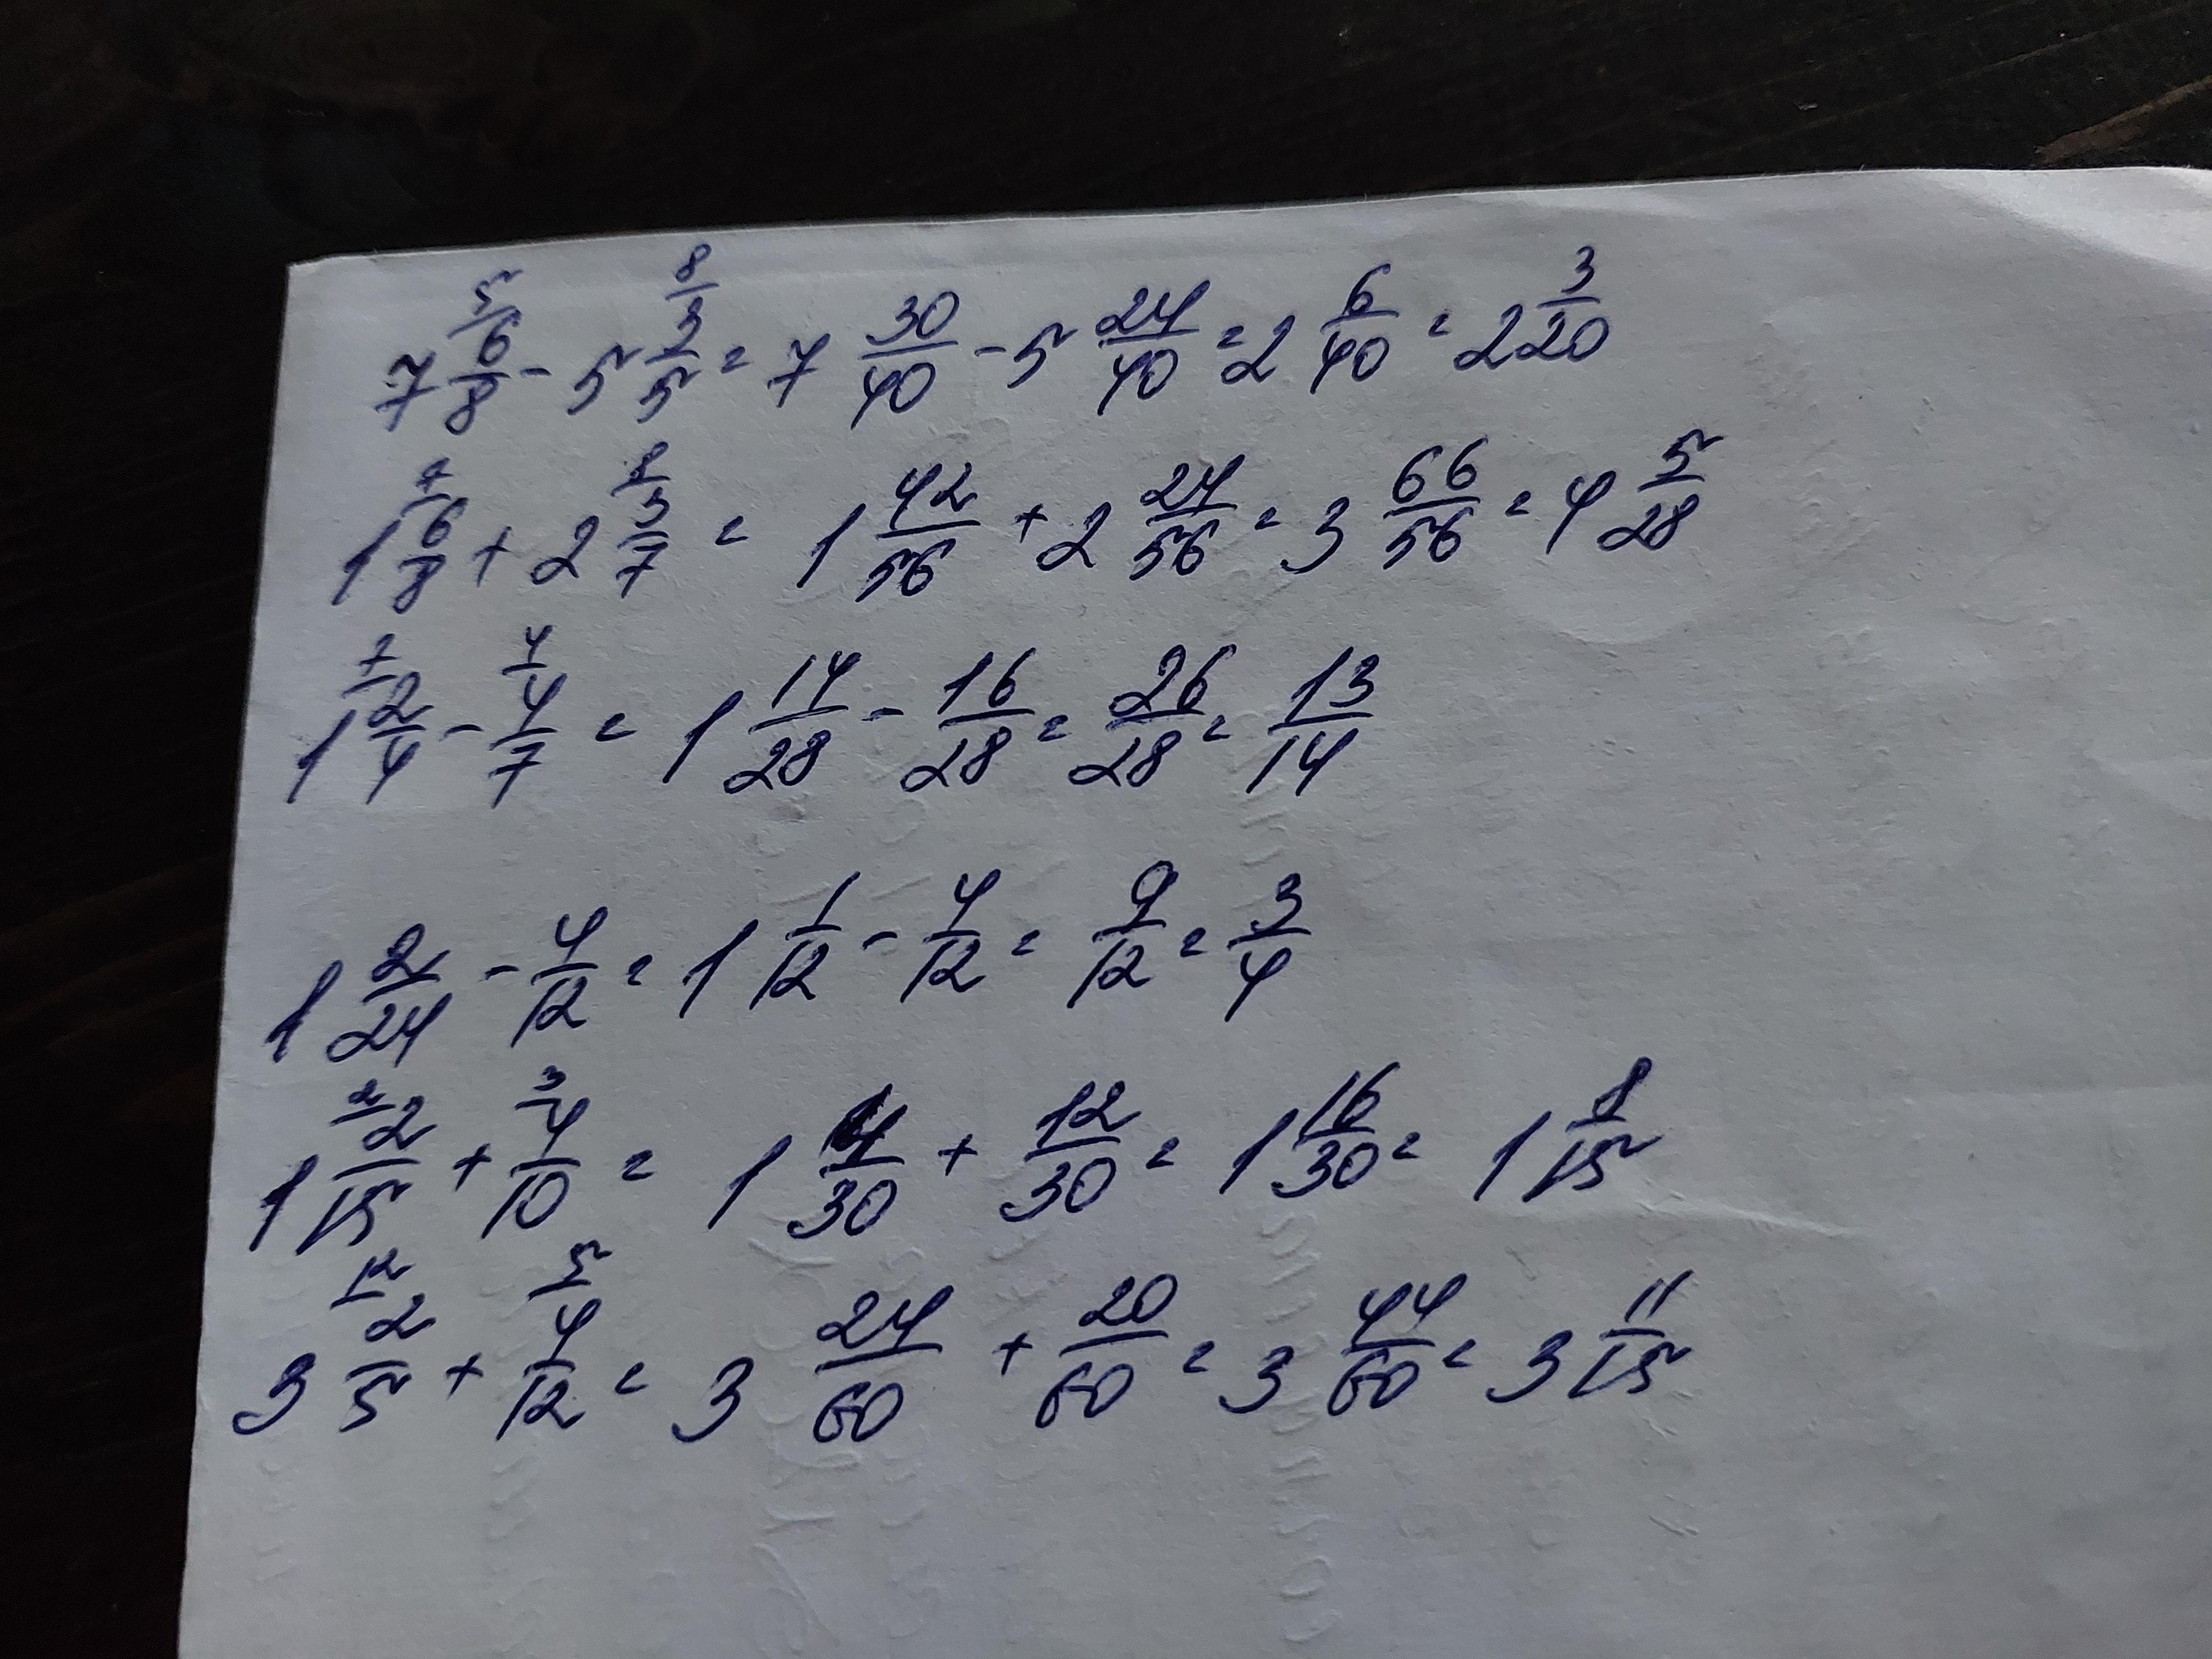 7 5/ 6/8 - 5 8/ 3/5 = 7 30/40 - 5 24/40 = 2 6/40 = 2 3/20
1 7/ 6/8 + 2 8/ 3/7 = 1 42/56 + 2 24/56 = 3 66/56 = 4 5/28
1 7/ 2/4 - 4/ 4/7 = 1 14/28 - 16/28 = 26/28 = 13/14
1 2/24 - 4/12 = 1 1/12 - 4/12 = 9/12 = 3/4
1 2/ 2/15 + 3/ 4/10 = 1 4/30 + 12/30 = 1 16/30 = 1 8/15
3 12/ 2/5 + 5/ 4/12 = 3 24/60 + 20/60 = 3 44/60 = 3 11/15